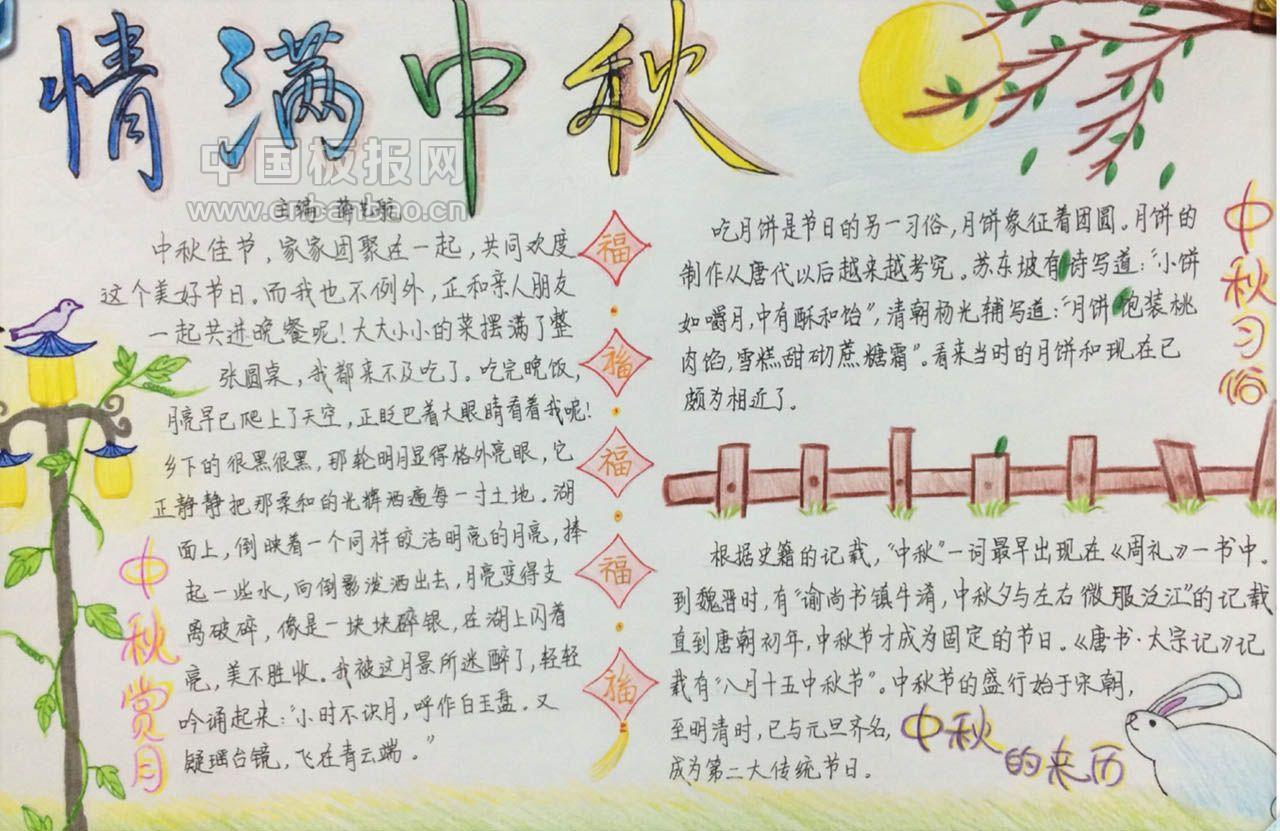 情满中秋
中国板报网
www.cnbanbao.cn
主编
中秋佳节，家家团聚在一起，共同欢度
这个美好节日。而我也不例外，正和亲人朋友
一起共进晚餐呢！大大小小的菜摆满了整
张圆桌，我都来不及吃了。吃完晚饭，
月亮早已爬上了天空，正眨巴着大眼睛看着我呢！
乡下的很黑很黑，那轮明月显得格外亮眼，它
正静静把那柔和的光辉洒遍每一寸土地。湖
面上，倒映着一个同样皎洁明亮的月亮，捧
起一些水，向倒影泼洒出去，月亮变得支
离破碎，像是一块块碎银，在湖上闪着
亮，美不胜收。我被这月景所迷醉了，轻轻
吟诵起来：“小时不识月，呼作白玉盘。又
疑瑶台镜，飞在青云端。”
中秋赏月
福
福
福
福
福
吃月饼是节日的另一习俗，月饼象征着团圆。月饼的
制作从唐代以后越来越考究。苏东坡有诗写道：“小饼
如嚼月，中有酥和饴”，清朝杨光辅写道：“月饼饱装桃
肉馅，雪糕甜砌蔗糖霜”。看来当时的月饼和现在已
颇为相近了。
中秋习俗
根据史籍的记载，“中秋”一词最早出现在《周礼》一书中。
到魏晋时，有“谕尚书镇牛淆，中秋夕与左右微服泛江”的记载
直到唐朝初年，中秋节才成为固定的节日。《唐书·太宗记》记
载有“八月十五中秋节”。中秋节的盛行始于宋朝，
至明清时，已与元旦齐名，
成为第二大传统节日。
中秋的来历